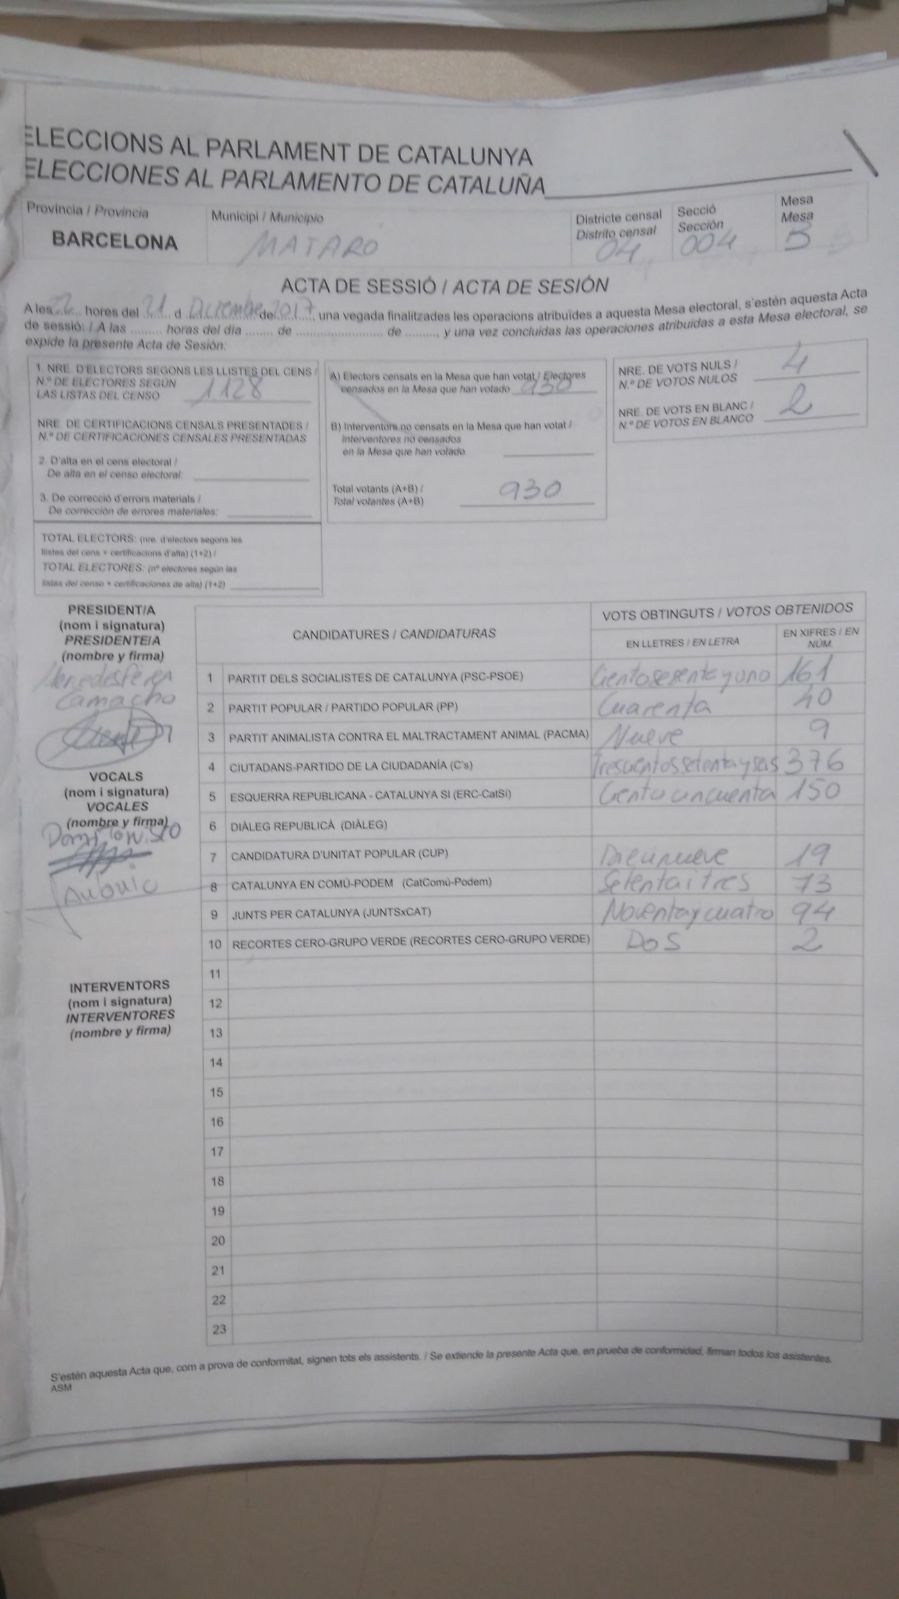 ELECCIONS AL PARLAMENT DE CATALUNYA
ELECCIONES AL PARLAMENTO DE CATALUÑA
Provincia / Provincia
BARCELONA
Municipi / Municipio
MATARÓ
Districte censal
Distrito censal
04
Secció
Sección
004
Mesa
Mesa
B
ACTA DE SESSIÓ / ACTA DE SESIÓN
A les 22 hores del 21 d Diciembre de 2017, una vegada finalitzades les operacions atribuïdes a aquesta Mesa electoral, s'estén aquesta Acta
de sessió: / A las ......... horas del día ....... de ........................ de ........, y una vez concluidas las operaciones atribuidas a esta Mesa electoral, se
expide la presente Acta de Sesión:
1. NRE. D'ELECTORS SEGONS LES LLISTES DEL CENS /
N.º DE ELECTORES SEGÚN
LAS LISTAS DEL CENSO 1128
NRE. DE CERTIFICACIONS CENSALS PRESENTADES /
N.º DE CERTIFICACIONES CENSALES PRESENTADAS
2. D'alta en el cens electoral /
De alta en el censo electoral:
3. De correcció d'errors materials /
De corrección de errores materiales:
TOTAL ELECTORS: (nre. d'electors segons les
llistes del cens + certificacions d'alta) (1+2) /
TOTAL ELECTORES: (nº electores según las
listas del censo + certificaciones de alta) (1+2)
A) Electors censats en la Mesa que han votat / Electores
censados en la Mesa que han votado 930
B) Interventors no censats en la Mesa que han votat /
Interventores no censados
en la Mesa que han votado
Total votants (A+B) /
Total votantes (A+B) 930
NRE. DE VOTS NULS /
N.º DE VOTOS NULOS 4
NRE. DE VOTS EN BLANC /
N.º DE VOTOS EN BLANCO 2
PRESIDENT/A
(nom i signatura)
PRESIDENTE/A
(nombre y firma)
Camacho
VOCALS
(nom i signatura)
VOCALES
(nombre y firma)
INTERVENTORS
(nom i signatura)
INTERVENTORES
(nombre y firma)
CANDIDATURES / CANDIDATURAS
VOTS OBTINGUTS / VOTOS OBTENIDOS
EN LLETRES / EN LETRA
EN XIFRES / EN NÚM.
1 PARTIT DELS SOCIALISTES DE CATALUNYA (PSC-PSOE) Cientosesenta y uno 161
2 PARTIT POPULAR / PARTIDO POPULAR (PP) Cuarenta 40
3 PARTIT ANIMALISTA CONTRA EL MALTRACTAMENT ANIMAL (PACMA) Nueve 9
4 CIUTADANS-PARTIDO DE LA CIUDADANÍA (C's) Trescientos setenta y seis 376
5 ESQUERRA REPUBLICANA - CATALUNYA SÍ (ERC-CatSí) Ciento cincuenta 150
6 DIÀLEG REPUBLICÀ (DIÀLEG)
7 CANDIDATURA D'UNITAT POPULAR (CUP) Diecinueve 19
8 CATALUNYA EN COMÚ-PODEM (CatComú-Podem) Setenta i tres 73
9 JUNTS PER CATALUNYA (JUNTSxCAT) Noventa y cuatro 94
10 RECORTES CERO-GRUPO VERDE (RECORTES CERO-GRUPO VERDE) Dos 2
11
12
13
14
15
16
17
18
19
20
21
22
23
S'estén aquesta Acta que, com a prova de conformitat, signen tots els assistents. / Se extiende la presente Acta que, en prueba de conformidad, firman todos los asistentes.
ASM